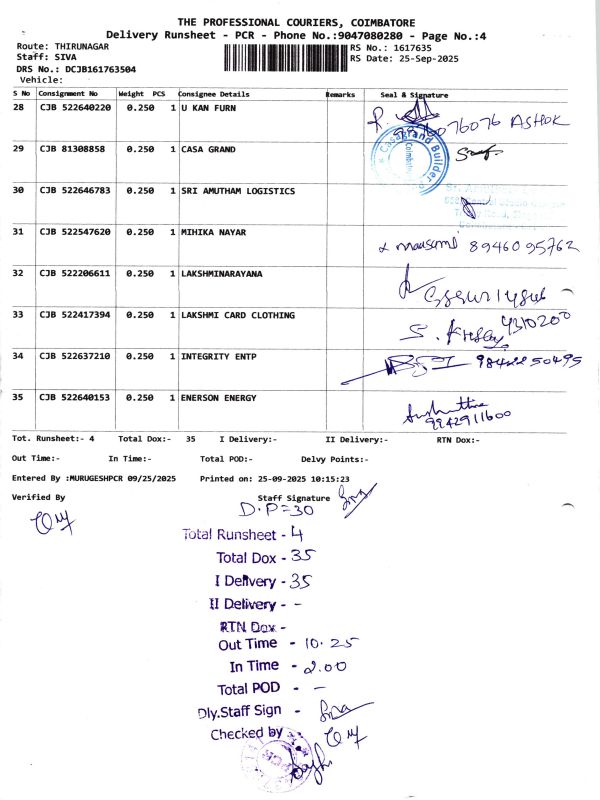 THE PROFESSIONAL COURIERS, COIMBATORE
Delivery Runsheet - PCR - Phone No.:9047080280 - Page No.:4
Route: THIRUNAGAR RS No.: 1617635
Staff: SIVA RS Date: 25-Sep-2025
DRS No.: DCJB161763504
Vehicle:
S No Consignment No Weight PCS Consignee Details Remarks Seal & Signature
28 CJB 522640220 0.250 1 U KAN FURN
76076 ASHOK
29 CJB 81308858 0.250 1 CASA GRAND
Casagrand Builder
Coimbatore
30 CJB 522646783 0.250 1 SRI AMUTHAM LOGISTICS
31 CJB 522547620 0.250 1 MIHIKA NAYAR
8946095762
32 CJB 522206611 0.250 1 LAKSHMINARAYANA
33 CJB 522417394 0.250 1 LAKSHMI CARD CLOTHING
4310200
34 CJB 522637210 0.250 1 INTEGRITY ENTP
9842250495
35 CJB 522640153 0.250 1 ENERSON ENERGY
9942911600
Tot. Runsheet:- 4 Total Dox:- 35 I Delivery:- II Delivery:- RTN Dox:-
Out Time:- In Time:- Total POD:- Delvy Points:-
Entered By :MURUGESHPCR 09/25/2025 Printed on: 25-09-2025 10:15:23
Verified By Staff Signature
D.P=30
Total Runsheet - 4
Total Dox - 35
I Delivery - 35
II Delivery - -
RTN Dox -
Out Time - 10.25
In Time - 2.00
Total POD - -
Dly.Staff Sign -
Checked by